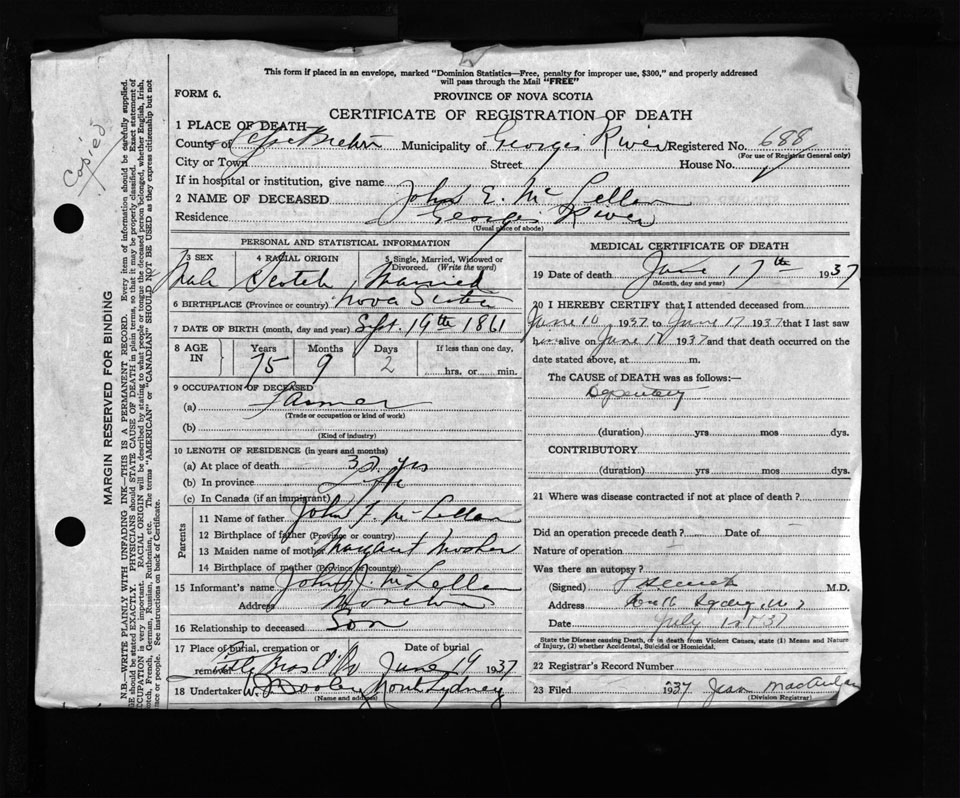 This form if placed in an envelope, marked "Dominion Statistics—Free, penalty for improper use, $300," and properly addressed
will pass through the Mail "FREE"
FORM 6.
PROVINCE OF NOVA SCOTIA
CERTIFICATE OF REGISTRATION OF DEATH
Copied
1 PLACE OF DEATH
County of Cape Breton Municipality of Georges River Registered No. 688
(For use of Registrar General only)
City or Town Street House No.
If in hospital or institution, give name
2 NAME OF DECEASED John E. McLellan
Residence Georges River
(Usual place of abode)
PERSONAL AND STATISTICAL INFORMATION
3 SEX 4 RACIAL ORIGIN 5 Single, Married, Widowed or
Divorced. (Write the word)
Male Scotch Married
6 BIRTHPLACE (Province or country) Nova Scotia
7 DATE OF BIRTH (month, day and year) Sept. 19th 1861
8 AGE IN Years Months Days If less than one day,
75 9 2 hrs. or min.
9 OCCUPATION OF DECEASED
(a) Farmer
(Trade or occupation or kind of work)
(b)
(Kind of industry)
10 LENGTH OF RESIDENCE (in years and months)
(a) At place of death 32 yrs
(b) In province Life
(c) In Canada (if an immigrant)
Parents
11 Name of father John McLellan
12 Birthplace of father (Province or country)
13 Maiden name of mother Margaret Mosher
14 Birthplace of mother (Province or country)
15 Informant's name John J. McLellan
Address
16 Relationship to deceased Son
17 Place of burial, cremation or Date of burial
removal Little Bras d'Or June 19 1937
18 Undertaker W. Dooley North Sydney
(Name and address)
MEDICAL CERTIFICATE OF DEATH
19 Date of death June 17th 1937
(Month, day and year)
20 I HEREBY CERTIFY that I attended deceased from
June 10 1937 to June 17 1937 that I last saw
h alive on June 1937 and that death occurred on the
date stated above, at m.
The CAUSE of DEATH was as follows:—
Dysentery
(duration) yrs mos dys.
CONTRIBUTORY
(duration) yrs mos dys.
21 Where was disease contracted if not at place of death?
Did an operation precede death? Date of
Nature of operation
Was there an autopsy?
(Signed) M.D.
Address Sydney
Date July 1st 37
State the Disease causing Death, or in death from Violent Causes, state (1) Means and Nature
of Injury, (2) whether Accidental, Suicidal or Homicidal.
22 Registrar's Record Number
23 Filed 1937 Jean
(Division Registrar)
MARGIN RESERVED FOR BINDING
N.B.—WRITE PLAINLY WITH UNFADING INK—THIS IS A PERMANENT RECORD. Every item of information should be carefully supplied.
GE should be stated EXACTLY. PHYSICIANS should STATE CAUSE OF DEATH in plain terms, so that it may be properly classified. Exact statement of
OCCUPATION is very important. RACIAL ORIGIN will be described by stating to what people or tongue the deceased person belonged, whether English, Irish,
Scotch, French, German, Russian, Ruthenian, etc. The terms "AMERICAN" or "CANADIAN" SHOULD NOT BE USED as they express citizenship but not
race or people. See instructions on back of Certificate.